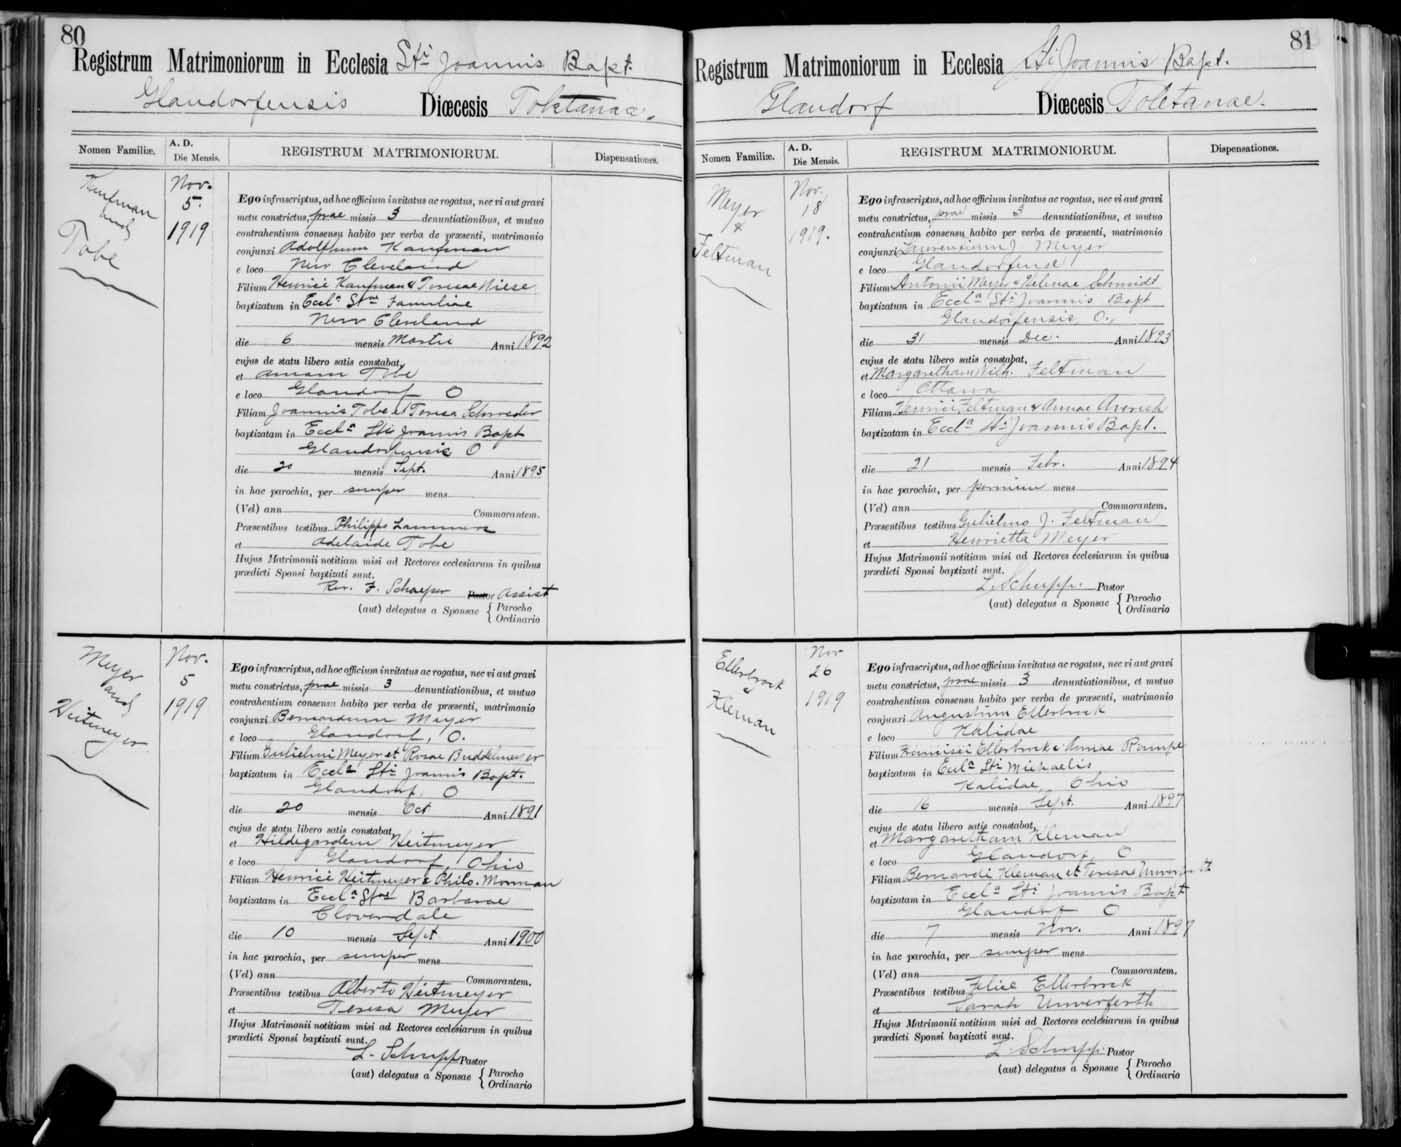 80
Registrum Matrimoniorum in Ecclesia Sti Joannis Bapt.
Glandorfensis Diœcesis Toletanae.
Nomen Familiæ. A. D. Die Mensis. REGISTRUM MATRIMONIORUM. Dispensationes.
Kaufman
and
Tobe
Nov.
5.
1919
Ego infrascriptus, ad hoc officium invitatus ac rogatus, nec vi aut gravi
metu constrictus, prae missis 3 denuntiationibus, et mutuo
contrahentium consensu habito per verba de præsenti, matrimonio
conjunxi Adolphum Kaufman
e loco New Cleveland
Filium Henrici Kaufman & Teresae Niese
baptizatum in Eccla Stae Familiae
New Cleveland
die 6 mensis Martii Anni 1892
cujus de statu libero satis constabat,
et Annam Tobe
e loco Glandorf O
Filiam Joannis Tobe et Teresa Schroeder
baptizatam in Eccla Sti Joannis Bapt
Glandorfensis O
die 20 mensis Sept. Anni 1895
in hac parochia, per semper mens
(Vel) ann Commorantem.
Præsentibus testibus Philippo
et Adelaide Tobe
Hujus Matrimonii notitiam misi ad Rectores ecclesiarum in quibus
prædicti Sponsi baptizati sunt.
Rev. F. Schaefer Pastor Assist
(aut) delegatus a Sponsae { Parocho
Ordinario
Meyer
and
Heitmeyer
Nov.
5
1919
Ego infrascriptus, ad hoc officium invitatus ac rogatus, nec vi aut gravi
metu constrictus, prae missis 3 denuntiationibus, et mutuo
contrahentium consensu habito per verba de præsenti, matrimonio
conjunxi Bernardum Meyer
e loco Glandorf, O.
Filium Gulielmi Meyer et Rosae
baptizatum in Eccla Sti Joannis Bapt.
Glandorf, O
die 20 mensis Oct Anni 1891
cujus de statu libero satis constabat,
et Hildegardem Heitmeyer
e loco Glandorf, Ohio
Filiam Henrici Heitmeyer & Philo. Morman
baptizatam in Eccla Stae Barbarae
Cloverdale
die 10 mensis Sept Anni 1900
in hac parochia, per semper mens
(Vel) ann Commorantem.
Præsentibus testibus Alberto Heitmeyer
et Teresa Meyer
Hujus Matrimonii notitiam misi ad Rectores ecclesiarum in quibus
prædicti Sponsi baptizati sunt.
L. Schupp Pastor
(aut) delegatus a Sponsae { Parocho
Ordinario
81
Registrum Matrimoniorum in Ecclesia Sti Joannis Bapt.
Glandorf Diœcesis Toletanae.
Nomen Familiæ. A. D. Die Mensis. REGISTRUM MATRIMONIORUM. Dispensationes.
Meyer
&
Feltman
Nov.
18
1919.
Ego infrascriptus, ad hoc officium invitatus ac rogatus, nec vi aut gravi
metu constrictus, prae missis 3 denuntiationibus, et mutuo
contrahentium consensu habito per verba de præsenti, matrimonio
conjunxi Laurentium J Meyer
e loco Glandorfense
Filium Antonii Meyer & Helenae Schmidt
baptizatum in Eccla Sti Joannis Bapt
Glandorfensis, O.
die 31 mensis Dec. Anni 1893
cujus de statu libero satis constabat,
et Margaretham Feltman
e loco Ottawa
Filiam Henrici Feltman & Annae
baptizatam in Eccla Sti Joannis Bapt.
die 21 mensis Febr. Anni 1894
in hac parochia, per mens
(Vel) ann Commorantem.
Præsentibus testibus Gulielmo J. Feltman
et Henrietta Meyer
Hujus Matrimonii notitiam misi ad Rectores ecclesiarum in quibus
prædicti Sponsi baptizati sunt.
L. Schupp. Pastor
(aut) delegatus a Sponsae { Parocho
Ordinario
Ellerbrock
&
Kleman
Nov
26
1919
Ego infrascriptus, ad hoc officium invitatus ac rogatus, nec vi aut gravi
metu constrictus, prae missis 3 denuntiationibus, et mutuo
contrahentium consensu habito per verba de præsenti, matrimonio
conjunxi Augustum Ellerbrock
e loco Kalidae
Filium Francisci Ellerbrock & Annae Rampe
baptizatum in Eccla Sti Michaelis
Kalidae, Ohio
die 16 mensis Sept. Anni 1897
cujus de statu libero satis constabat,
et Margaretham Kleman
e loco Glandorf, O
Filiam Bernardi Kleman et Teresae
baptizatam in Eccla Sti Joannis Bapt
Glandorf O
die 7 mensis Nov. Anni 1897
in hac parochia, per semper mens
(Vel) ann Commorantem.
Præsentibus testibus Felice Ellerbrock
et Sarah Unverferth
Hujus Matrimonii notitiam misi ad Rectores ecclesiarum in quibus
prædicti Sponsi baptizati sunt.
L. Schupp. Pastor
(aut) delegatus a Sponsae { Parocho
Ordinario